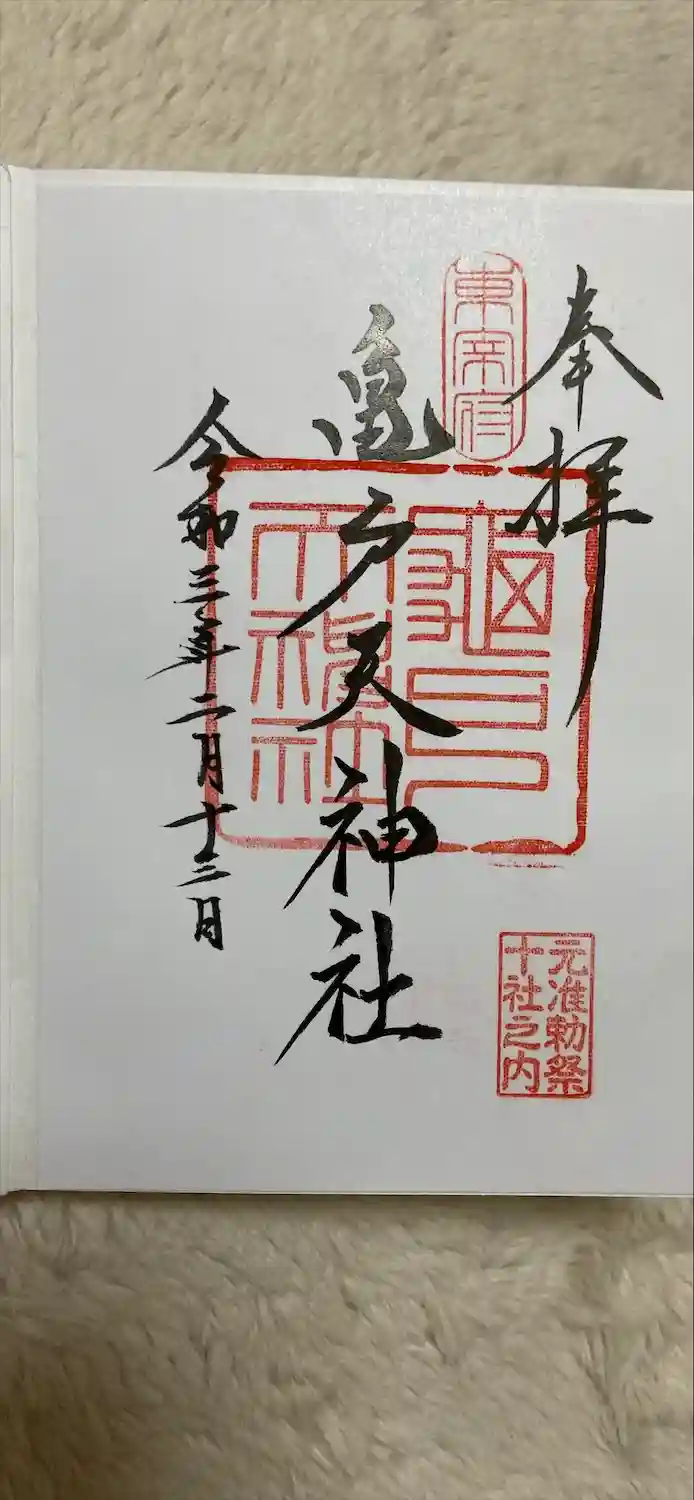 奉拝
東宰府
亀戸天神社
龜戸天神社
令和三年二月十三日
元准勅祭
十社之内